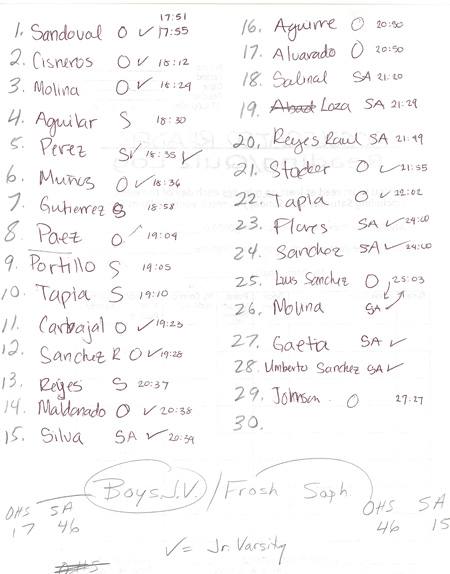 17:51
1. Sandoval O ✓ 17:55
2. Cisneros O ✓ 18:12
3. Molina O ✓ 18:29
4. Aguilar S 18:30
5. Perez S ✓ 18:35 ✓
6. Muños O ✓ 18:36
7. Gutierrez S 18:58
8. Paez O 19:04
9. Portillo S 19:05
10. Tapia S 19:10
11. Carbajal O ✓ 19:23
12. Sanchez R O ✓ 19:28
13. Reyes S 20:37
14. Maldonado O ✓ 20:38
15. Silva SA ✓ 20:39
16. Aguirre O 20:50
17. Alvarado O 20:50
18. Salinal SA 21:20
19. Abad Loza SA 21:29
20. Reyes Raul SA 21:49
21. Stocker O ✓ 21:55
22. Tapia O ✓ 22:02
23. Flores SA ✓ 24:00
24. Sanchez SA ✓ 24:00
25. Luis Sanchez O 25:03
26. Molina SA
27. Gaeta SA ✓
28. Umberto Sanchez SA ✓
29. Johnson O 27:27
30.
Boys J.V. / Frosh Soph
OHS SA
17 46
OHS SA
46 15
✓ = Jr. Varsity